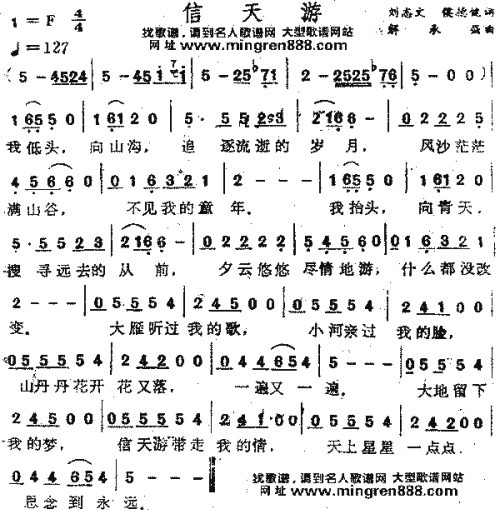 信天游
1 = F 4/4
刘志文 侯德健 词
♩=127
找歌谱,请到名人歌谱网 大型歌谱网站
解承强 曲
网址 www.mingren888.com
(5 - 4524 | 5 - 45 1 1 | 5 - 25 ♭71 | 2 - 2525 ♭76 | 5 - 0 0)
1 65 5 0 | 1 61 2 0 | 5 · 5 5 2 3 | 2 16 6 - | 0 2 2 2 5
我低头, 向山沟, 追 逐流逝的 岁 月, 风沙茫茫
4 5 6 6 0 | 0 1 6 3 2 1 | 2 - - - | 1 65 5 0 | 1 61 2 0
满山谷, 不见我的童 年。 我抬头, 向青天,
5 · 5 5 2 3 | 2 16 6 - | 0 2 2 2 2 | 5 4 5 6 0 | 0 1 6 3 2 1
搜 寻远去的 从 前, 夕云悠悠 尽情地游, 什么都没改
2 - - - | 0 5 5 5 4 | 2 4 5 0 0 | 0 5 5 5 4 | 2 4 1 0 0
变。 大雁听过 我的歌, 小河亲过 我的脸,
0 5 5 5 5 4 | 2 4 2 0 0 | 0 4 4 6 5 4 | 5 - - - | 0 5 5 5 4
山丹丹花开 花又落, 一遍又一 遍, 大地留下
2 4 5 0 0 | 0 5 5 5 5 4 | 2 4 1 0 0 | 0 5 5 5 4 | 2 4 2 0 0
我的梦, 信天游带走 我的情, 天上星星 一点点.
0 4 4 6 5 4 | 5 - - - ‖
找歌谱,请到名人歌谱网 大型歌谱网站
思念到永 远。
网址 www.mingren888.com